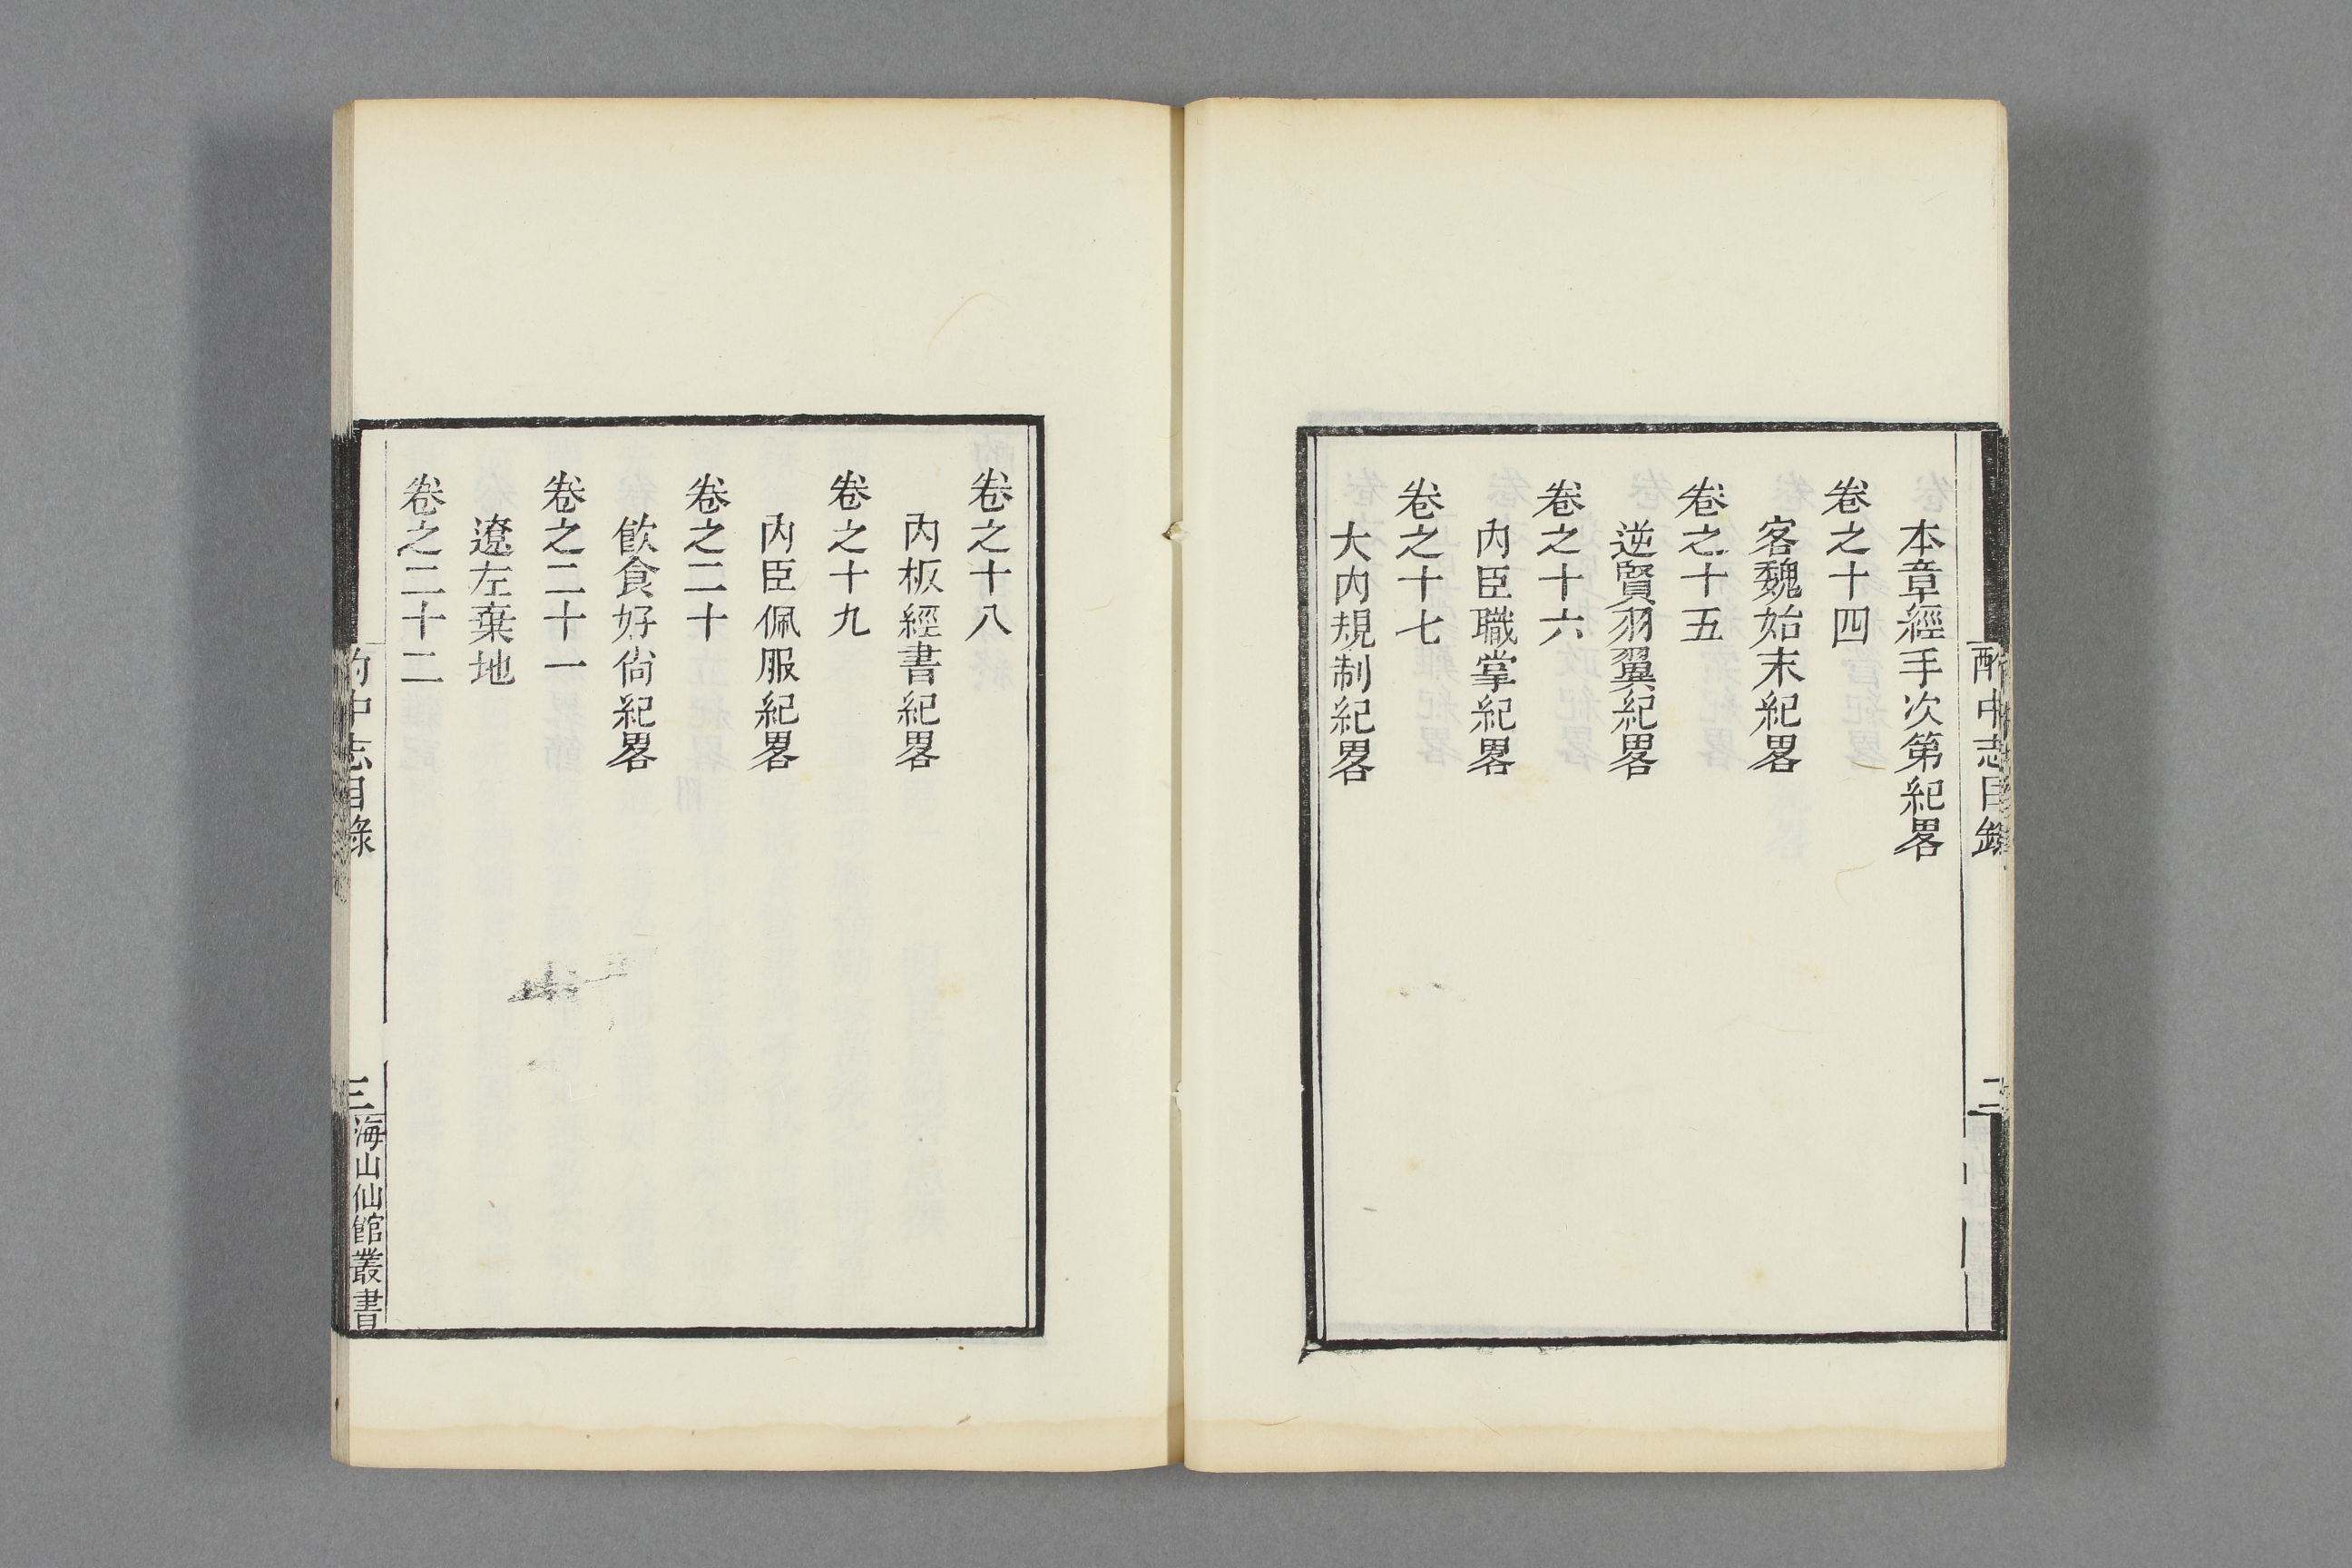 酌中志目錄
二
本章經手次第紀畧
卷之十四
客魏始末紀畧
卷之十五
逆賢羽翼紀畧
卷之十六
內臣職掌紀畧
卷之十七
大內規制紀畧
卷之十八
內板經書紀畧
卷之十九
內臣佩服紀畧
卷之二十
飮食好尙紀畧
卷之二十一
遼左棄地
卷之二十二
酌中志目錄
三
海山仙館叢書